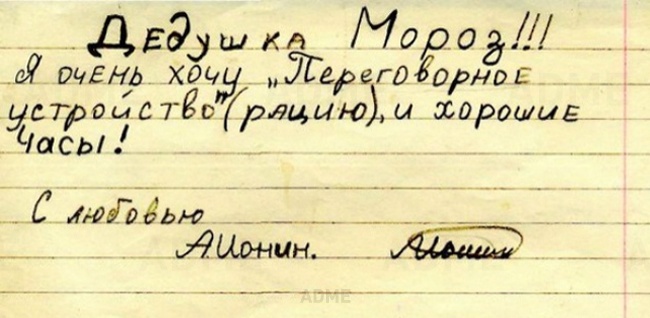 Дедушка Мороз!!!
Я очень хочу „Переговорное
устройство"(рацию), и хорошие
часы!
С любовью
А.Ионин. А.Ионин
ADME